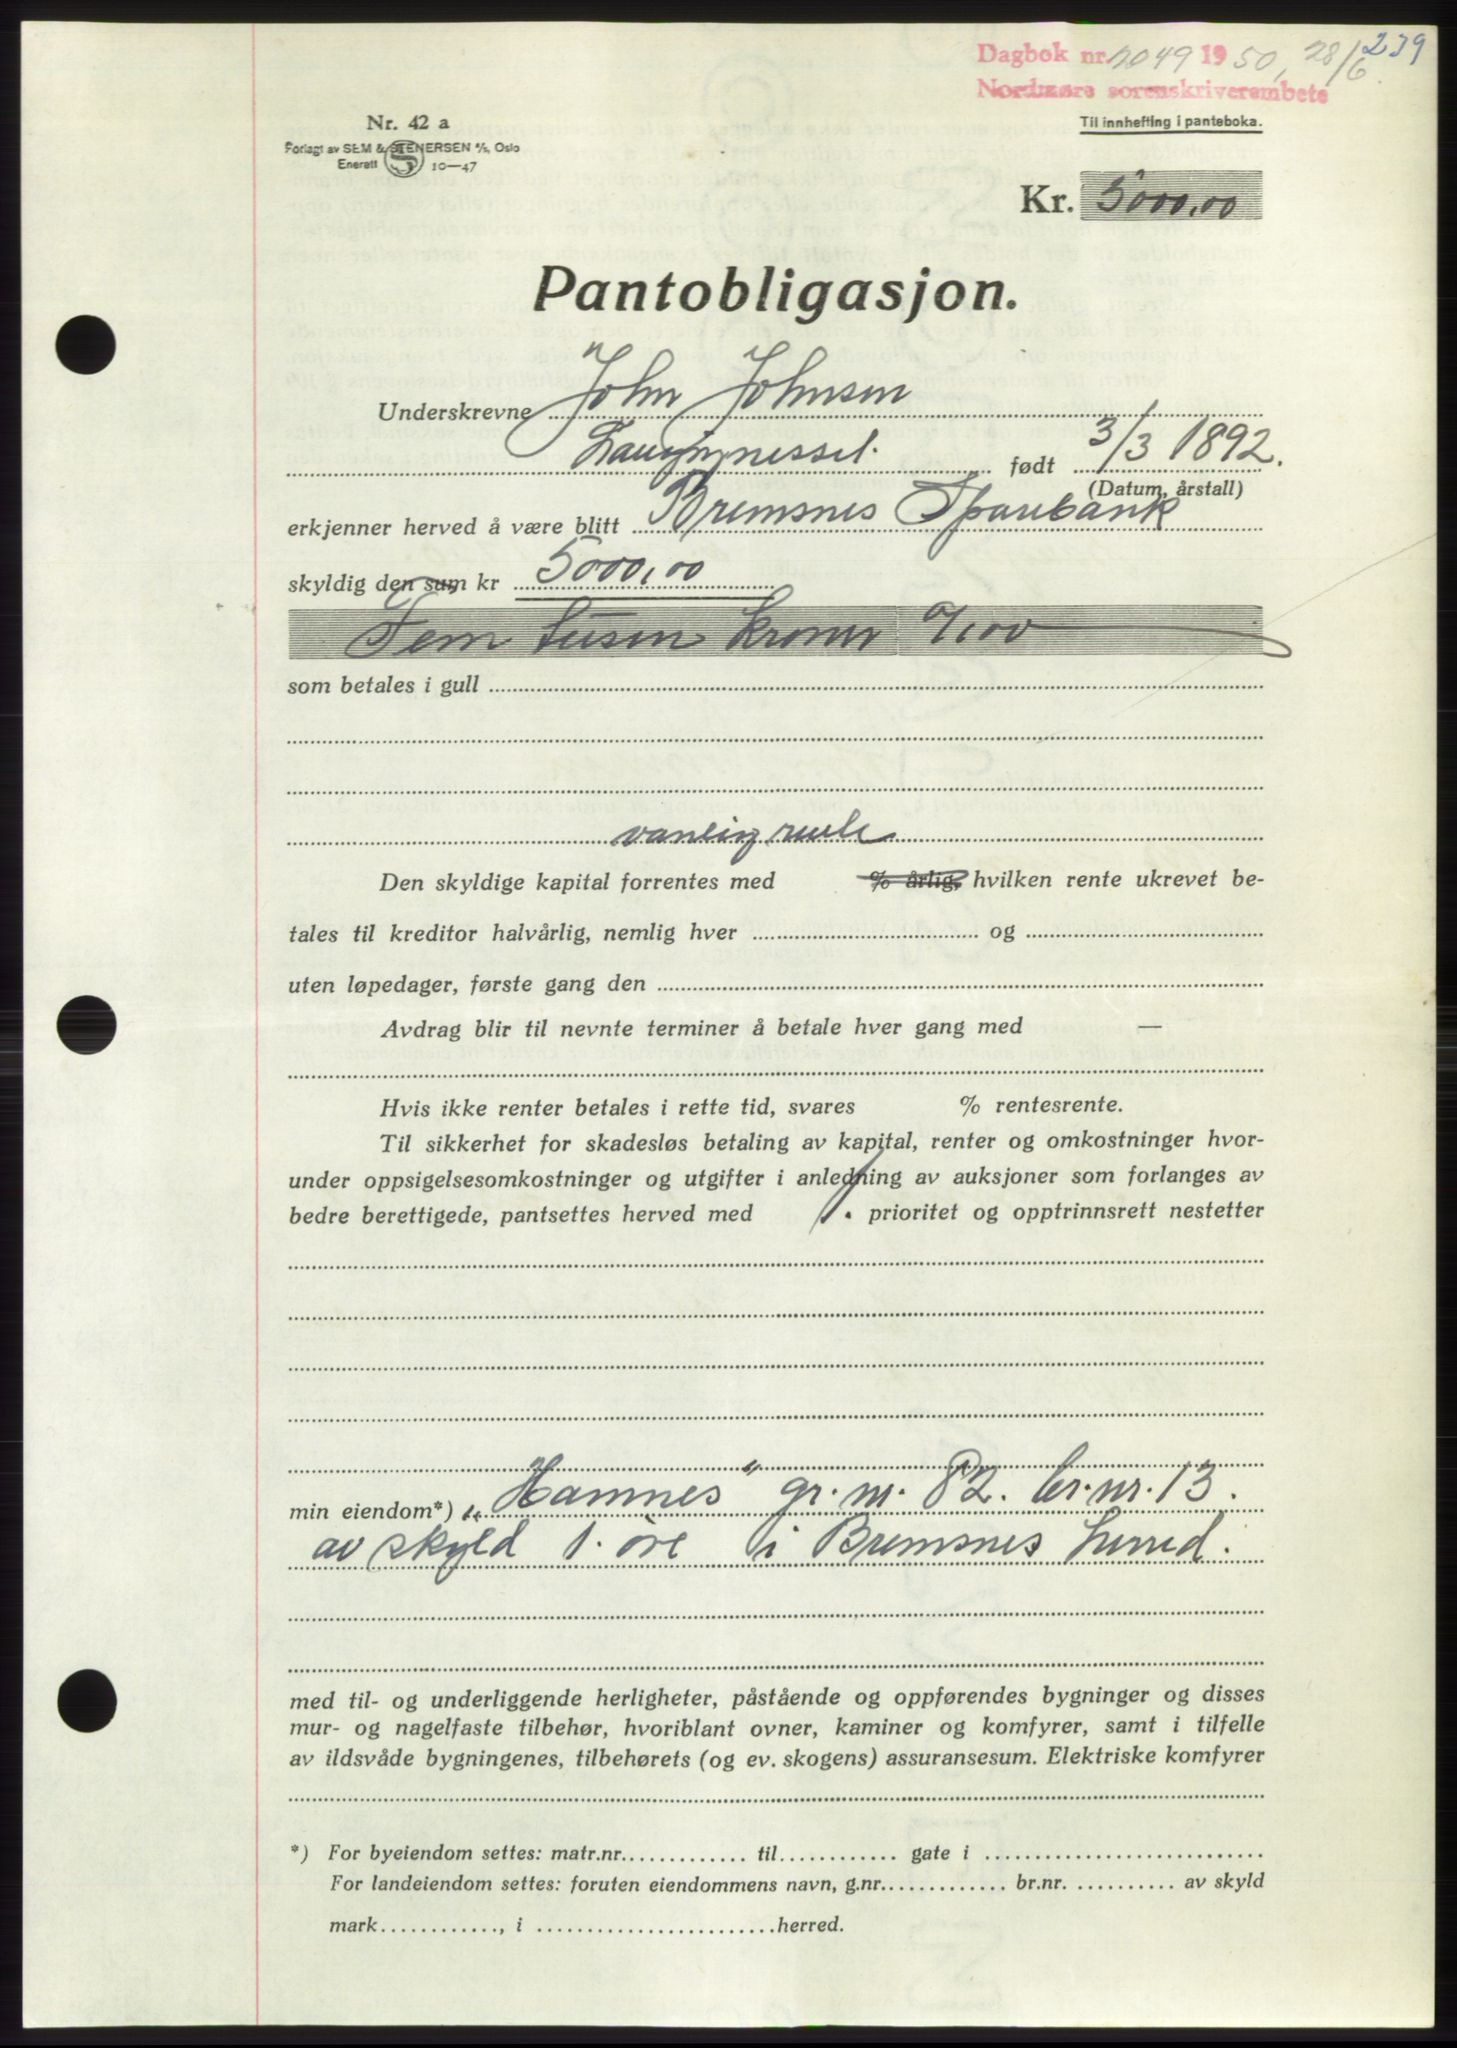 239
Dagbok nr. 2049 1950, 28/6.
Nordmøre sorenskriverembete
Nr. 42 a
Forlagt av SEM & STENERSEN A/S, Oslo
Enerett 10—47
Til innhefting i panteboka.
Kr. 5000,00
Pantobligasjon.
Underskrevne John Johnsen
født 3/3 1892.
(Datum, årstall)
erkjenner herved å være blitt Bremsnes Sparebank
skyldig den sum kr 5000,00
Fem tusen kroner 0/100
som betales i gull
vanlig rente
Den skyldige kapital forrentes med % årlig, hvilken rente ukrevet be-
tales til kreditor halvårlig, nemlig hver og
uten løpedager, første gang den
Avdrag blir til nevnte terminer å betale hver gang med —
Hvis ikke renter betales i rette tid, svares % rentesrente.
Til sikkerhet for skadesløs betaling av kapital, renter og omkostninger hvor-
under oppsigelsesomkostninger og utgifter i anledning av auksjoner som forlanges av
bedre berettigede, pantsettes herved med 1. prioritet og opptrinnsrett nestetter
min eiendom*) „Hamnes" gr. nr. 82. br. nr. 13.
av skyld 1. øre i Bremsnes herred.
med til- og underliggende herligheter, påstående og oppførendes bygninger og disses
mur- og nagelfaste tilbehør, hvoriblant ovner, kaminer og komfyrer, samt i tilfelle
av ildsvåde bygningenes, tilbehørets (og ev. skogens) assuransesum. Elektriske komfyrer
*) For byeiendom settes: matr.nr. til gate i
For landeiendom settes: foruten eiendommens navn, g.nr. br.nr. av skyld
mark , i herred.